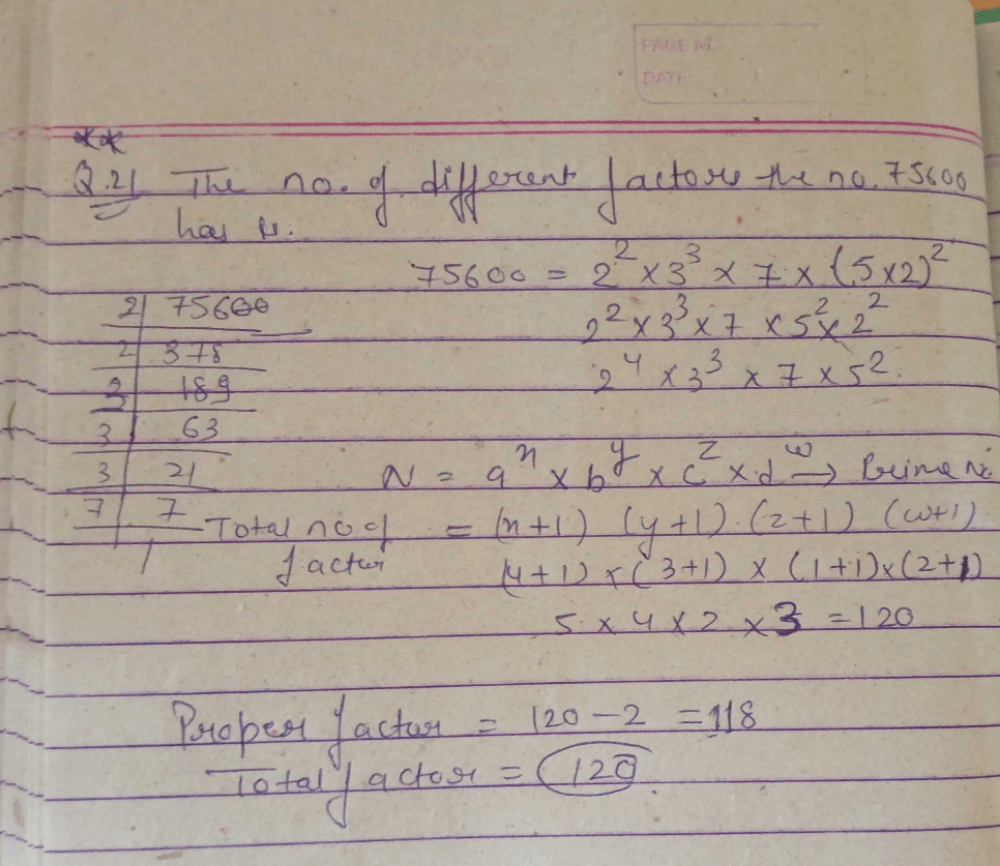 PAGE No.
DATE
**
Q.21 The no. of different factors the no. 75600
has is.
75600 = 2² × 3³ × 7 × (5×2)²
2² × 3³ × 7 × 5² × 2²
2⁴ × 3³ × 7 × 5².
2 | 75600
2 | 378
3 | 189
3 | 63
3 | 21
7 | 7
1
N = a^x × b^y × c^z × d^w → Prime No.
Total no of = (x+1) (y+1).(z+1) (w+1)
factor (4+1) × (3+1) × (1+1)×(2+1)
5 × 4 × 2 × 3 = 120
Proper factor = 120 − 2 = 118
Total factor = 120.